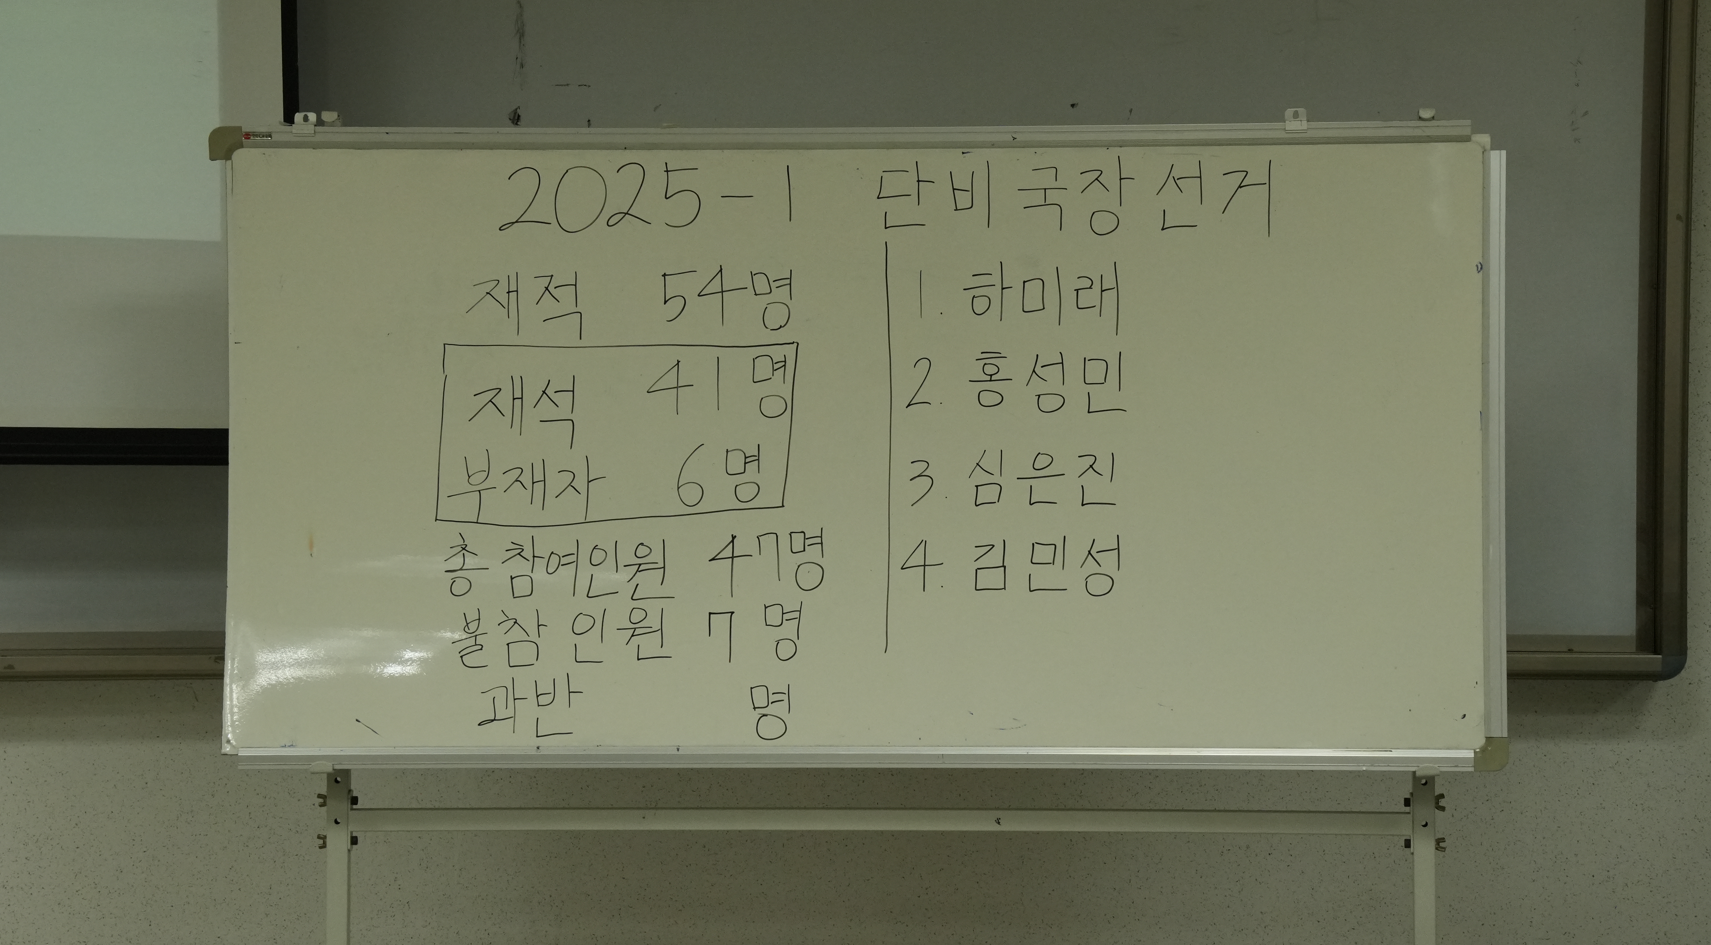 2025-1 단비 국장 선거
재적 54명
재석 41명
부재자 6명
총 참여인원 47명
불참 인원 7명
과반 명
1. 하미래
2. 홍성민
3. 심은진
4. 김민성